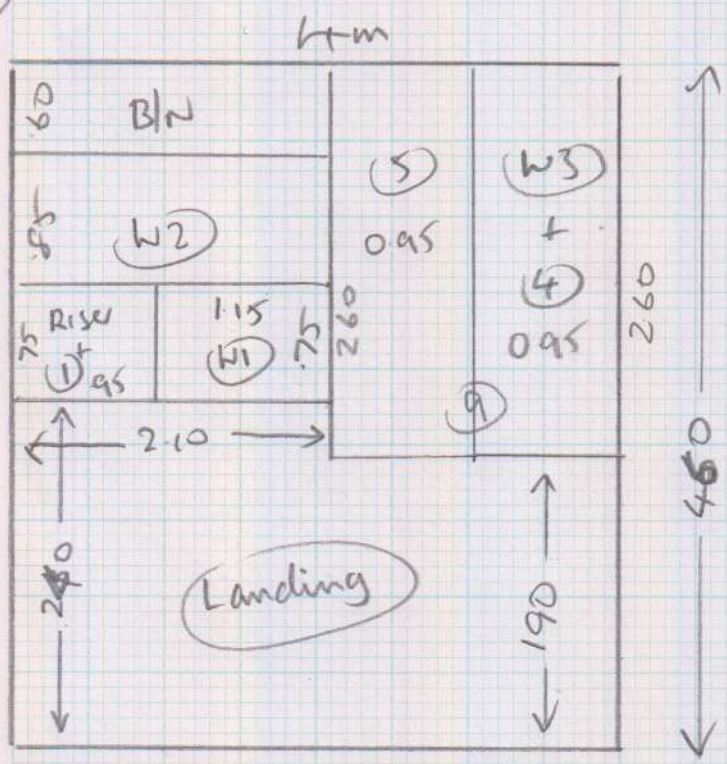 4m
.60 B/N
.85 W2
5
0.95
W3
+
4
0.95
75 Riser
1 + .95
1.15
W1
.75
260
260
9
2.10
Landing
190